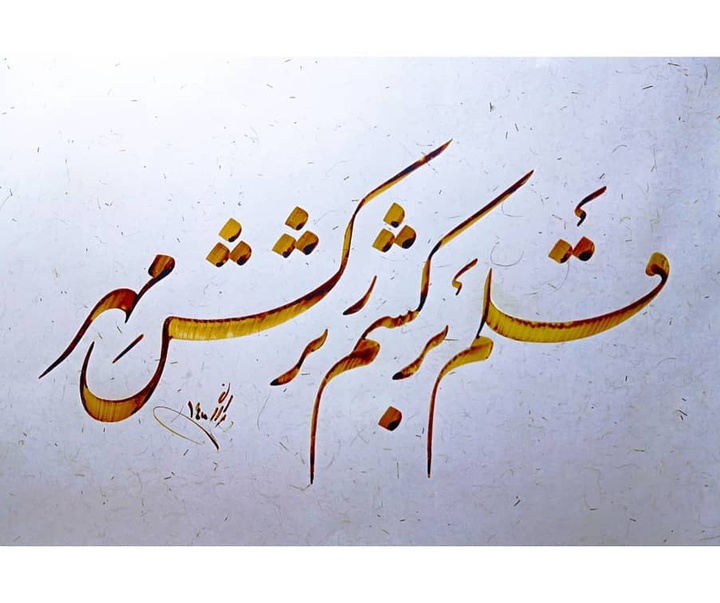 قلم برکشم بر کشش مهر